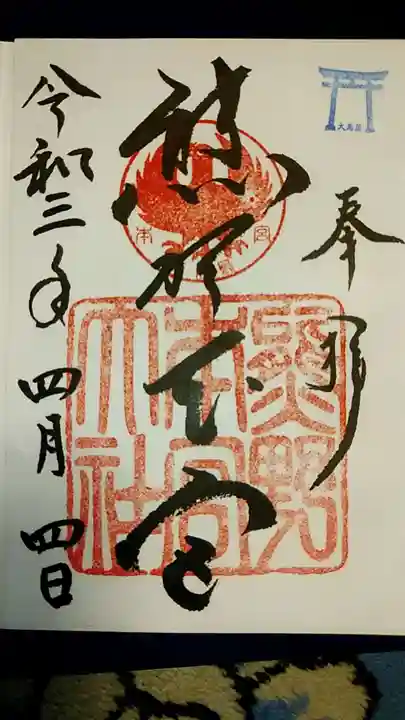 大斎原
奉拝
熊野本宮
本宮
熊野
本宮
大社
令和三年四月四日